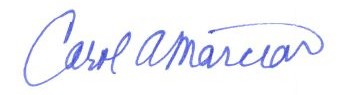 Carol A Marcian